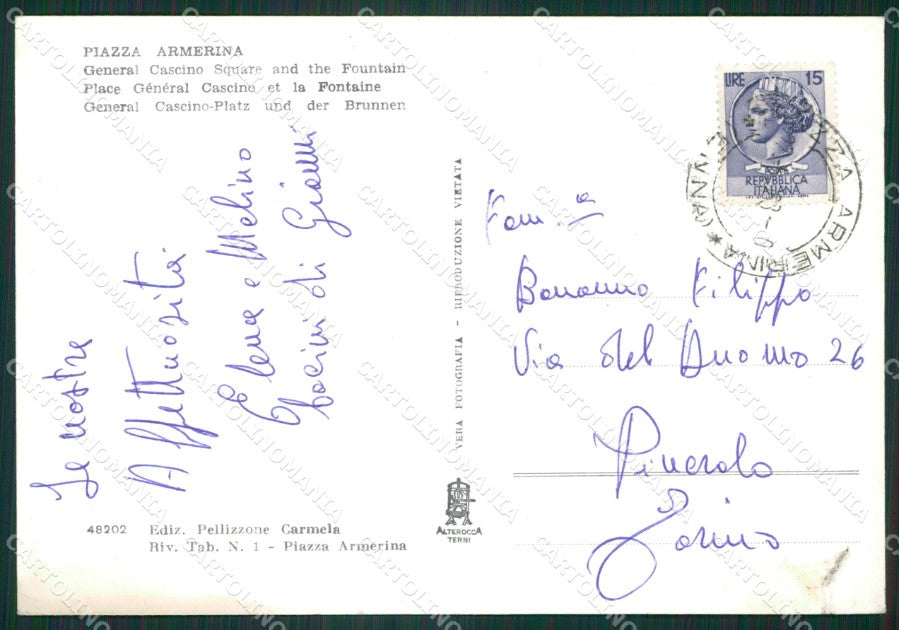 PIAZZA ARMERINA
General Cascino Square and the Fountain
Place Général Cascino et la Fontaine
General Cascino-Platz und der Brunnen
Le nostre
Affettuosità
Elena e Melino
bacini di Gianni
48202 Ediz. Pellizzone Carmela
Riv. Tab. N. 1 - Piazza Armerina
VERA FOTOGRAFIA - RIPRODUZIONE VIETATA
ALTEROCCA
TERNI
LIRE 15
REPVBBLICA
ITALIANA
PIAZZA ARMERINA * (ENNA)
Fam.a
Bonanno Filippo
Via del Duomo 26
Pinerolo
Torino
CARTOLINOMANIA